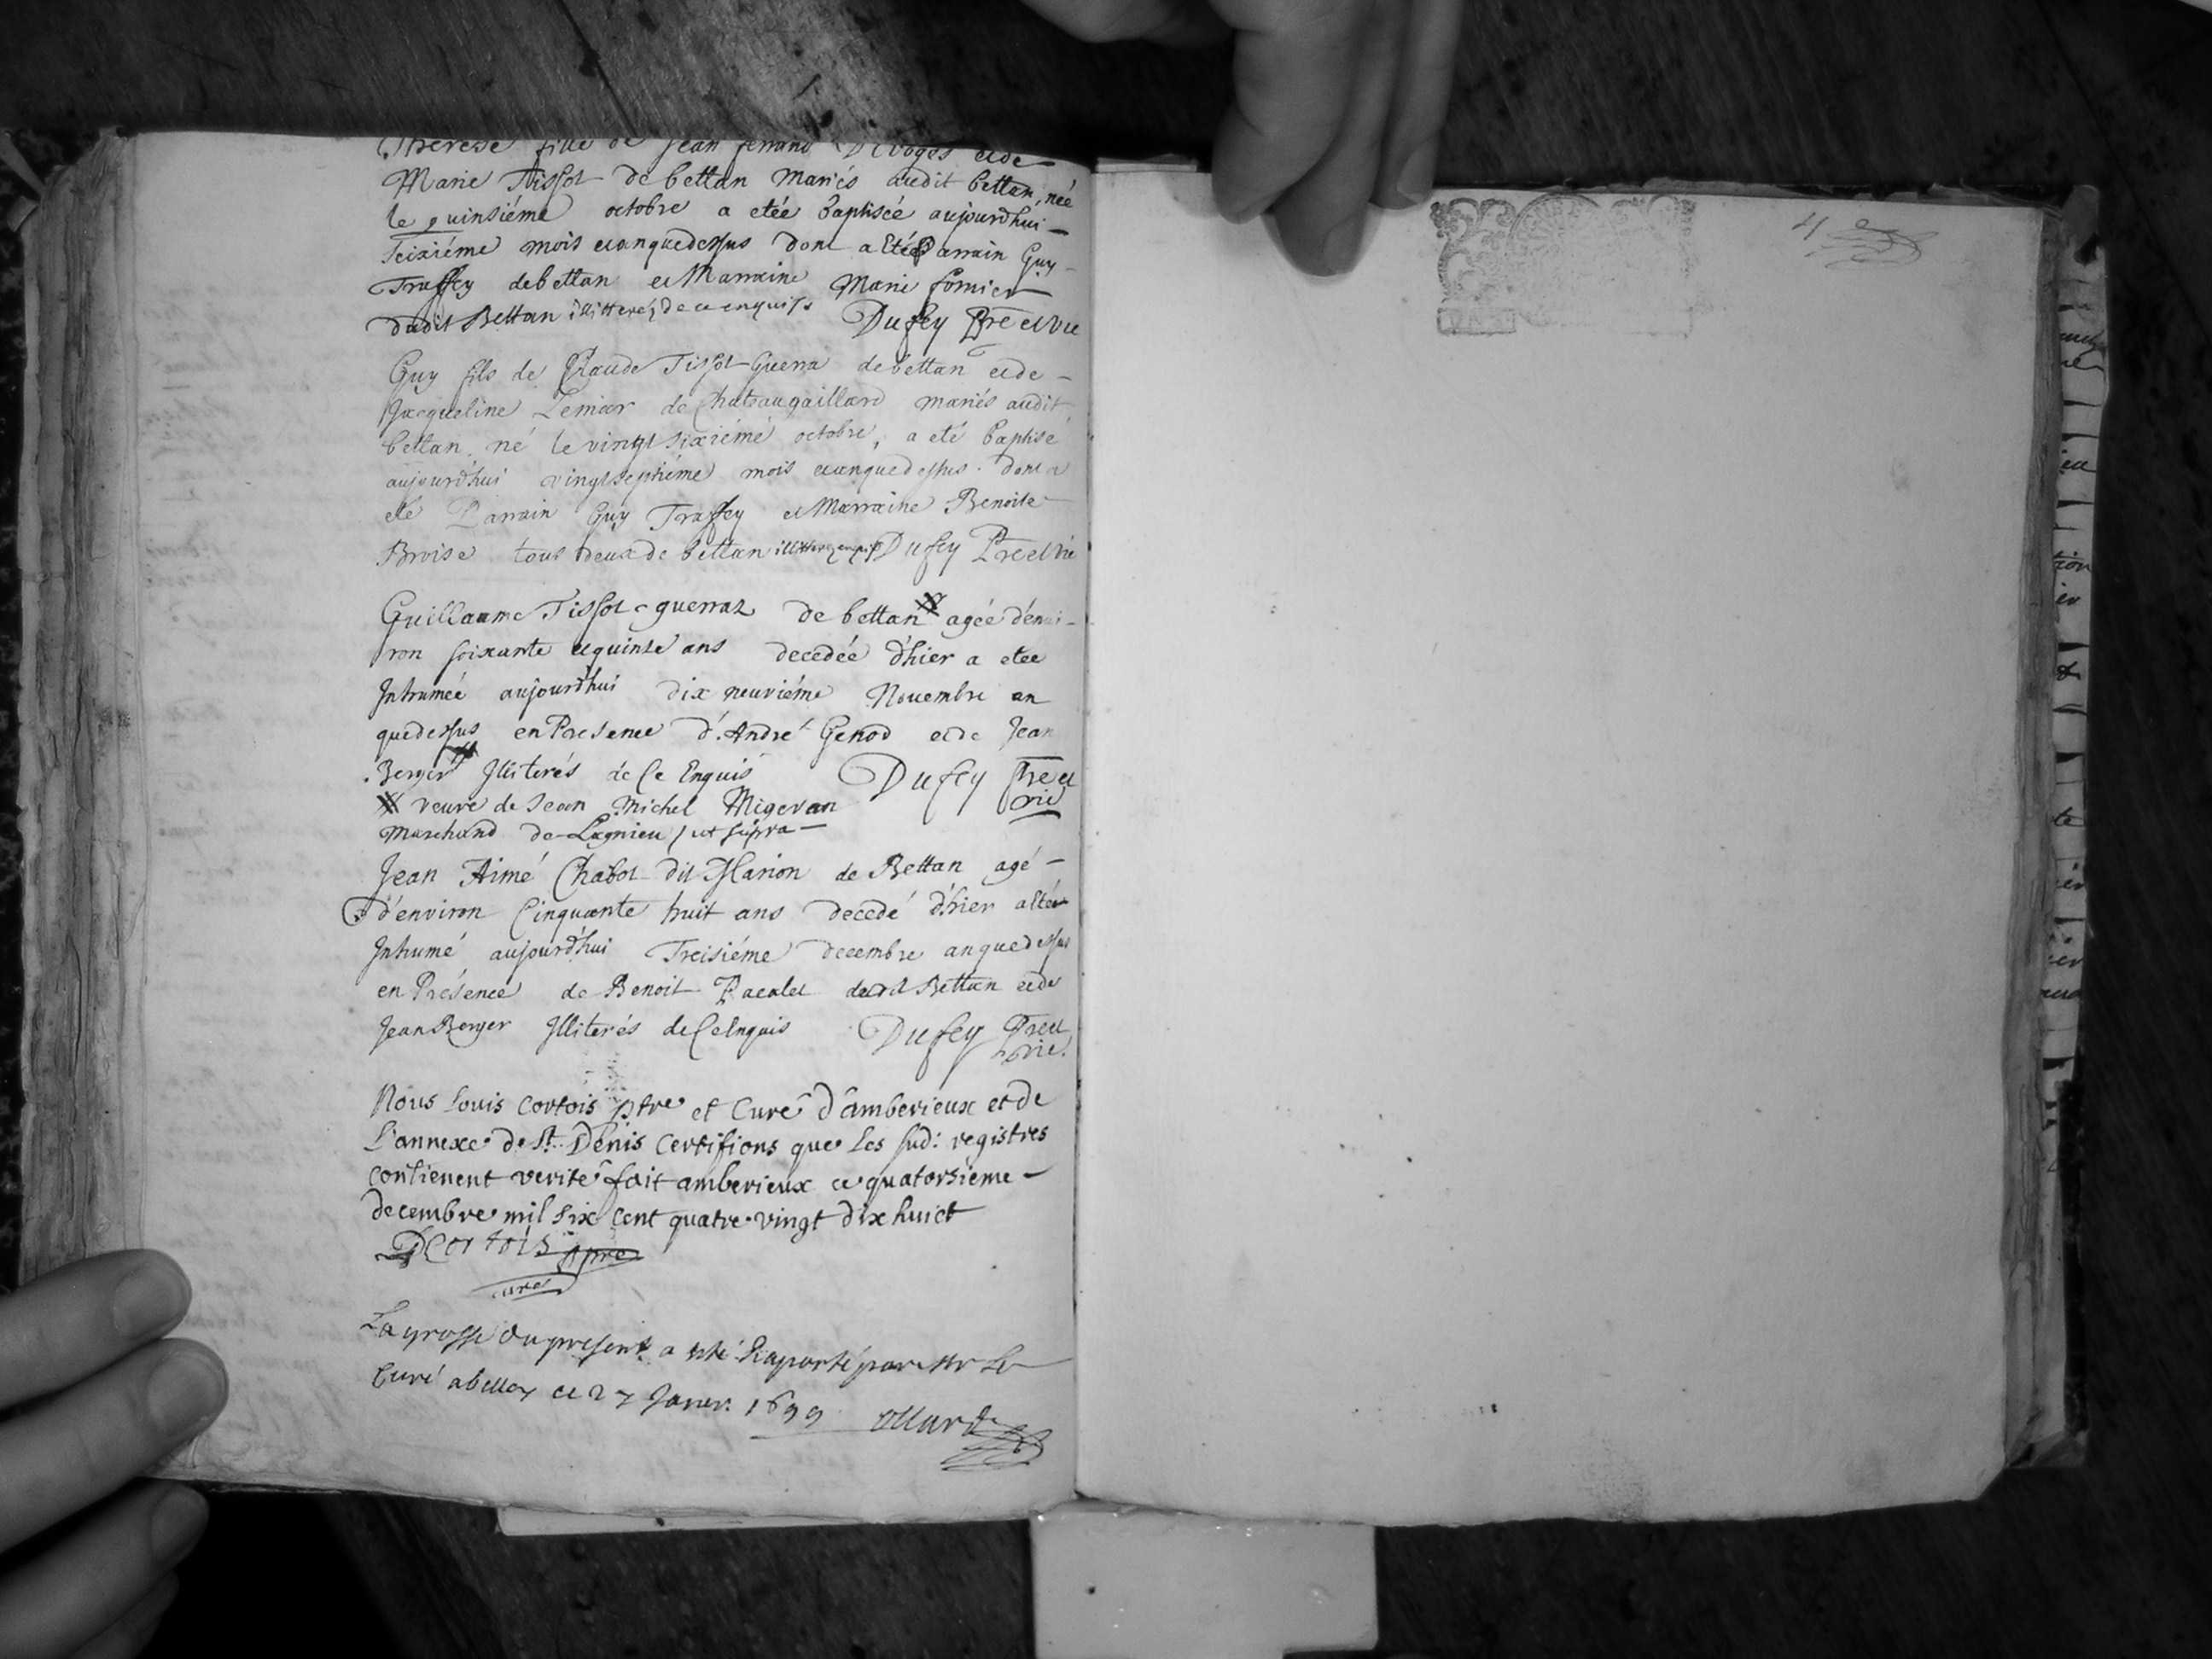 Therese fille de Jean ferrand Divoges et de
Marie Tissot de bettan mariés audit bettan, née
le quinsiéme octobre a etée baptisée aujourd'huï
seiziéme mois et an que dessus dont a été Parrain Guy
Traffey de bettan et Marraine Marie fornier
dudit Bettan illitterés de ce enquis Dufey Ptre et vic
Guy fils de Claude Tissot-Guerra de bettan et de
Jacqueline Lemior de Chateaugaillard mariés audit
bettan. né le vingt sixiémé octobre, a eté baptisé
aujourd'hui vingt septiéme mois et an que dessus. dont a
eté Parrain Guy Traffey et Marraine Benoite
Broise tous deux de bettan Dufey Ptre et vic
Guillaume Tissot-guerraz de bettan agée d'envi-
ron soixante et quinze ans decedée d'hier a etée
Inhumeé aujourd'hui dix neuviéme Novembre an
que dessus en Presence d'André Genod et de Jean
Berger Illiterés de Ce Enquis Dufey Ptre et
vic
veuve de Jean Michel Migevan
marchand de Lagnieu / ut supra
Jean Aimé Chabot dit Marion de Bettan agé
d'environ Cinquante huit ans decedé d'hier a eté
Inhumé aujourd'hui Treisiéme decembre an que dessus
en Présence de Benoit Pacalet dudit Bettan et de
Jean Berger Illiterés de Ce Enquis Dufey Ptre et
vic.
Nous Louis Cortois ptre et Curé d'amberieux et de
L'annexe de St. Denis Certifions que les sud: registres
contienent verité fait amberieux ce quatorsieme
decembre mil six cent quatre vingt dix huict
Cortois ptre
curé
La grosse du present a esté Raporté par Mr Le
Curé a belley ce 27 Janvr. 1699
4